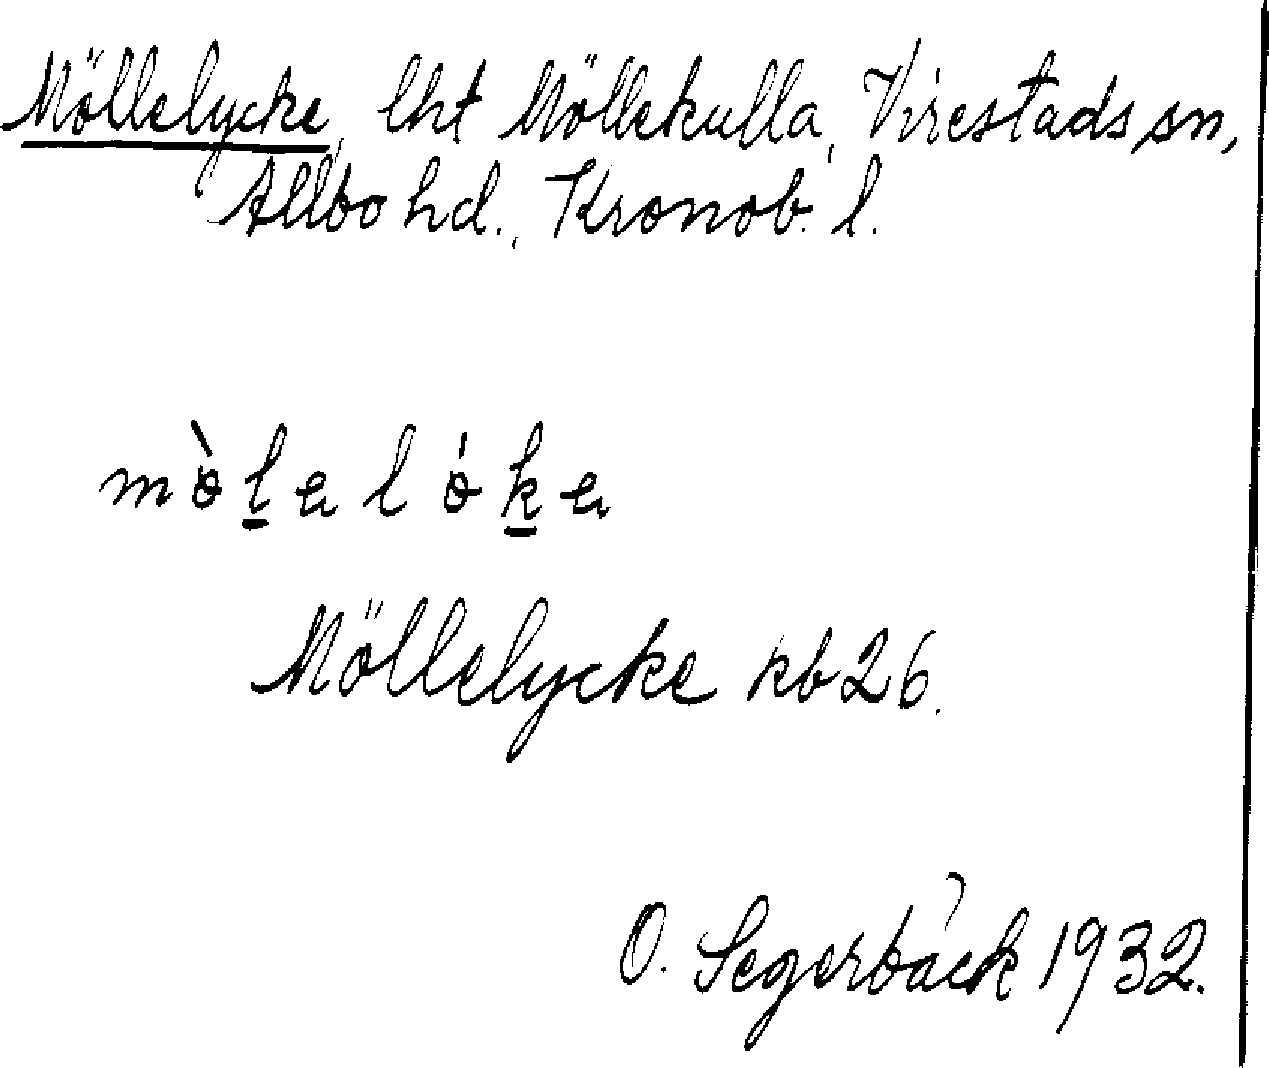 Möllelycke, lht Möllekulla, Virestads sn,
Allbo hd., Kronob. l.
mò̀lelóke
Möllelycke kb 26.
O. Segerbäck 1932.